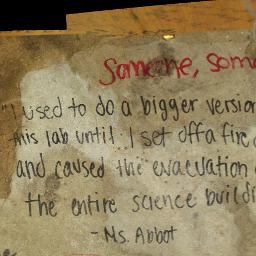 Someone, som
"I used to do a bigger version
this lab until I set off a fire
and caused the evacuation
the entire science buildi
- Ms. Abbot